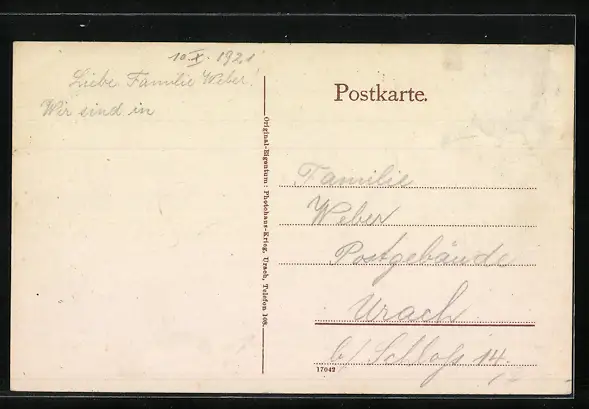 10.X.1921
Liebe Familie Weber!
Wir sind in
Original-Eigentum: Photohaus-Krieg, Urach, Telefon 108.
Postkarte.
Familie
Weber
Postgebäude
Urach
b/ Schloß 14.
17042